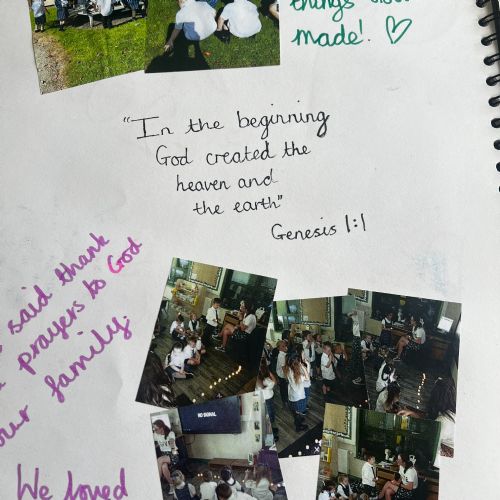 things
made! ♡
"In the beginning
God created the
heaven and
the earth"
Genesis 1:1
said thank
prayers to God
our family.
We loved
NO SIGNAL